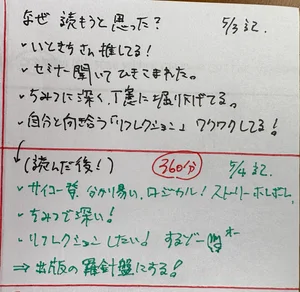 なぜ 読もうと思った? 5/3記.
・いときちさん推してる!
・セミナー聞いてひきこまれた。
・ちみつに深く、丁寧に掘り下げてる。
・自分と向き合う「リフレクション」 ワクワクしてる!
(読んだ後!) 360分 5/4記.
・サイコー質、分かり易い、ロジカル! ストーリー
・ちみつで深い!
・リフレクションしたい! するぞー オー
⇒ 出版の羅針盤にする!